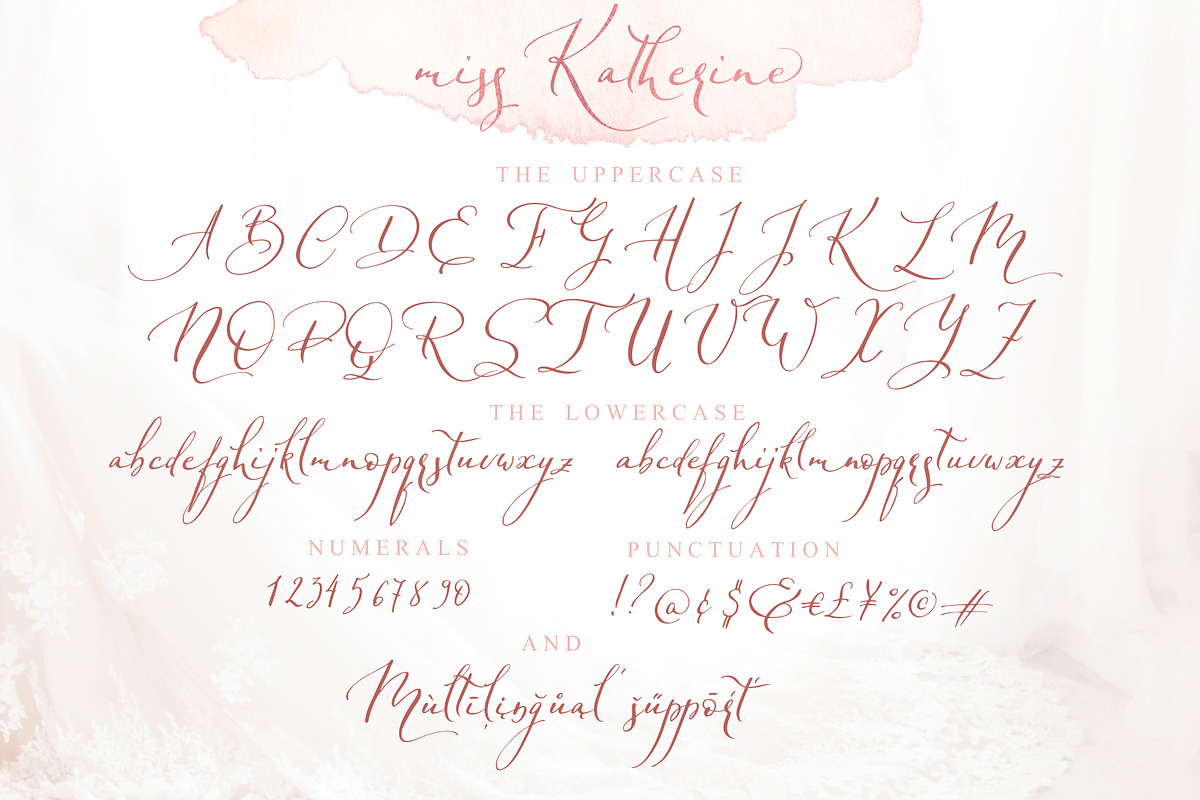 miss Katherine
THE UPPERCASE
A B C D E F G H I J K L M
N O P Q R S T U V W X Y Z
THE LOWERCASE
abcdefghijklmnopqrstuvwxyz abcdefghijklmnopqrstuvwxyz
NUMERALS PUNCTUATION
1234567890 !?@¢$&€£¥%©#
AND